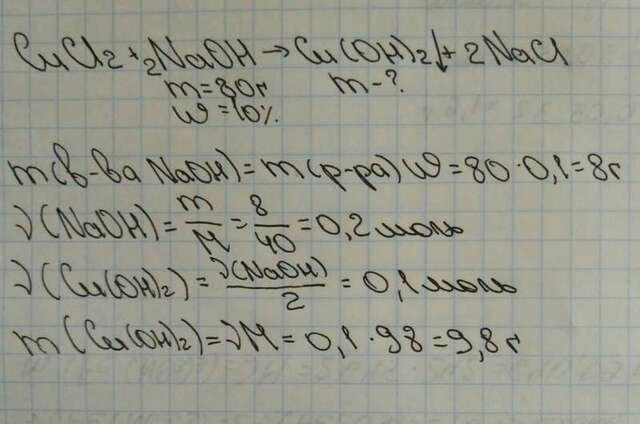 CuCl2 + 2NaOH → Cu(OH)2↓ + 2NaCl
m=80г m-?
w=10%.
m(в-ва NaOH)=m(р-ра)w=80·0,1=8г
ν(NaOH)=m/M=8/40=0,2моль
ν(Cu(OH)2)=ν(NaOH)/2=0,1моль
m(Cu(OH)2)=νM=0,1·98=9,8г